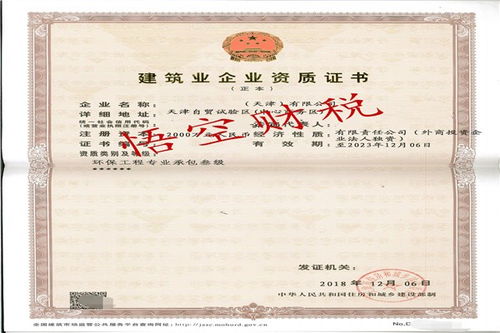 建筑业企业资质证书
(正本)
企业名称: (天津)有限公司
详细地址: 天津自贸试验区(中心商务区)
统一社会信用代码
(或营业执照注册号): 法定代表人:
注册资本: 2000万人民币 经济性质: 有限责任公司(外商投资企
业法人独资)
证书编号: 有效期: 至2023年12月06日
资质类别及等级:
环保工程专业承包叁级
悟空财税
发证机关:
2018年12月06日
中华人民共和国住房和城乡建设部制
全国建筑市场监管公共服务平台查询网址: http://jzsc.mohurd.gov.cn
No.D